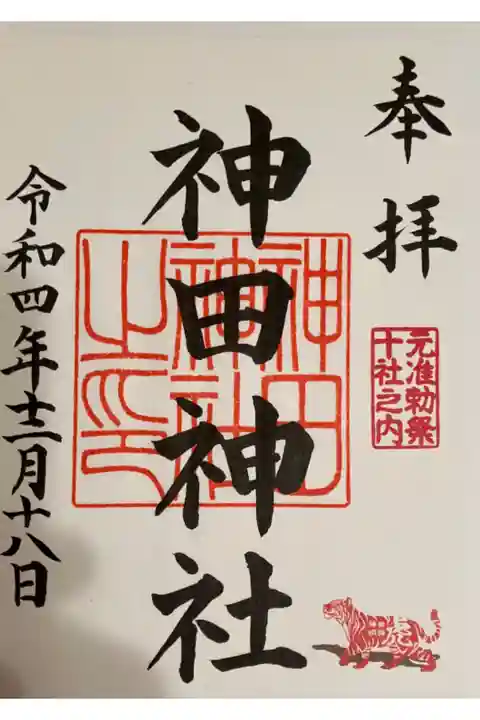 奉拝
元准勅祭
十社之内
神田神社
神田
神社
之印
令和四年十二月十八日